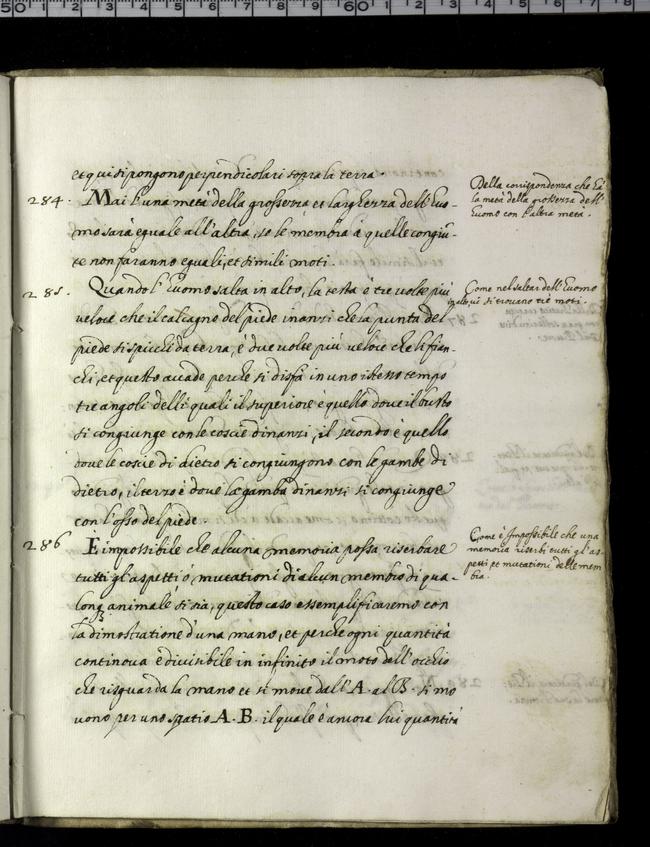 et qui si pongono perpendicolari sopra la terra.
284. Mai l'una metà della grossezza et larghezza dell'huo-
mo sarà eguale all'altra, se le membra à quelle congiu-
te non faranno eguali, et simili moti.
Della corrispondenza che hà
la metà della grossezza dell'
huomo con l'altra metà.
285. Quando l'huomo salta in alto, la testa è tre volte più
veloce che il calcagno del piede inanzi che la punta del
piede si spicchi da terra, è due volte più veloce che li fian-
chi, et questo accade perche si disfà in uno istesso tempo
tre angoli delli quali il superiore è quello dove il busto
si congiunge con le coscie dinanzi, il secondo è quello
dove le coscie di dietro si congiungono con le gambe di
dietro, il terzo è dove la gamba dinanzi si congiunge
con l'osso del piede.
Come nel saltar dell'huomo
in alto vi si trovano tre moti.
286 È impossibile che alcuna memoria possa riserbare
tutti gl'aspetti ò mutationi di alcun membro di qua-
lonq animale si sia, questo caso essemplificaremo con
la dimostratione d'una mano, et perche ogni quantità
continova è divisibile in infinito il moto dell'occhio
che risguarda la mano et si move dall'A. al B. si mo
vono per uno spatio A. B. il quale è ancora lui quantità
Come è Impossibile che una
memoria riserbi tutti gl'as-
petti et mutationi delle mem
bra.